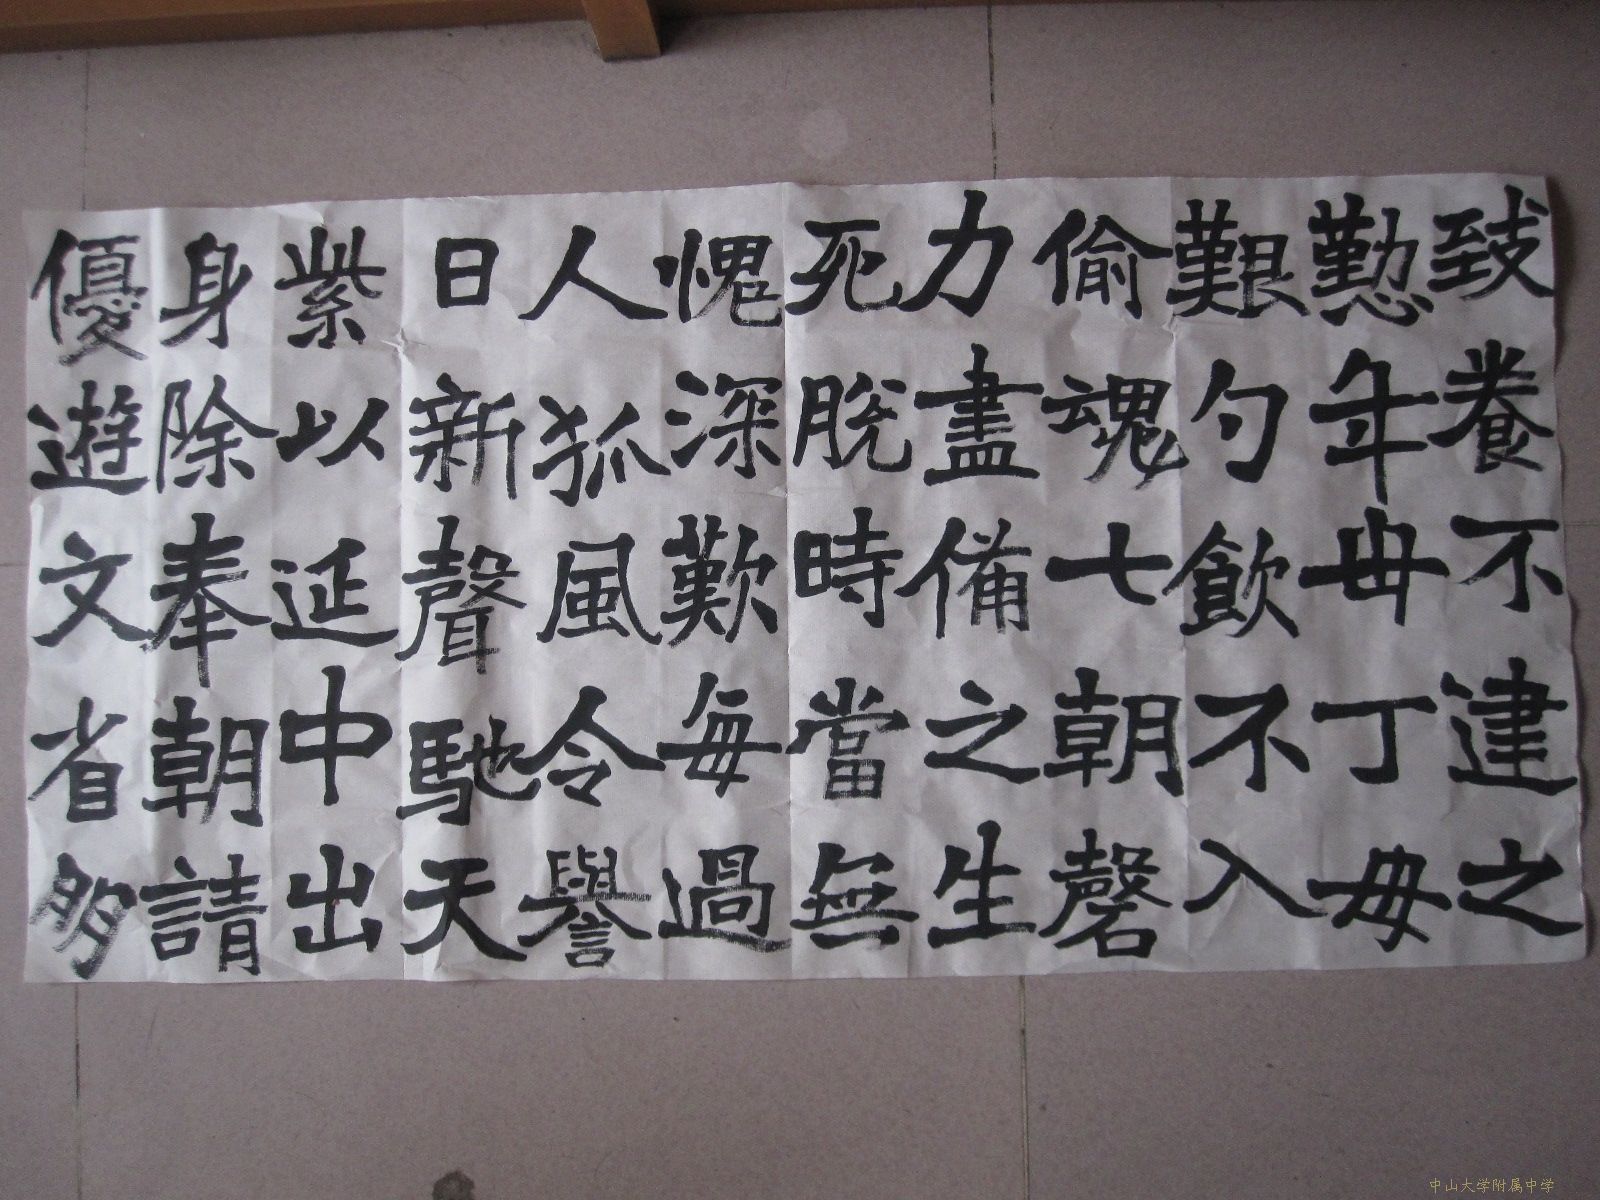 致養不建之
懃年毋丁毋
艱勺飲不入
偷魂七朝磬
力盡備之生
死脫時當無
愧深歎每過
人孤風令譽
日新聲馳天
紫以延中出
身除奉朝請
優遊文省朗
中山大学附属中学